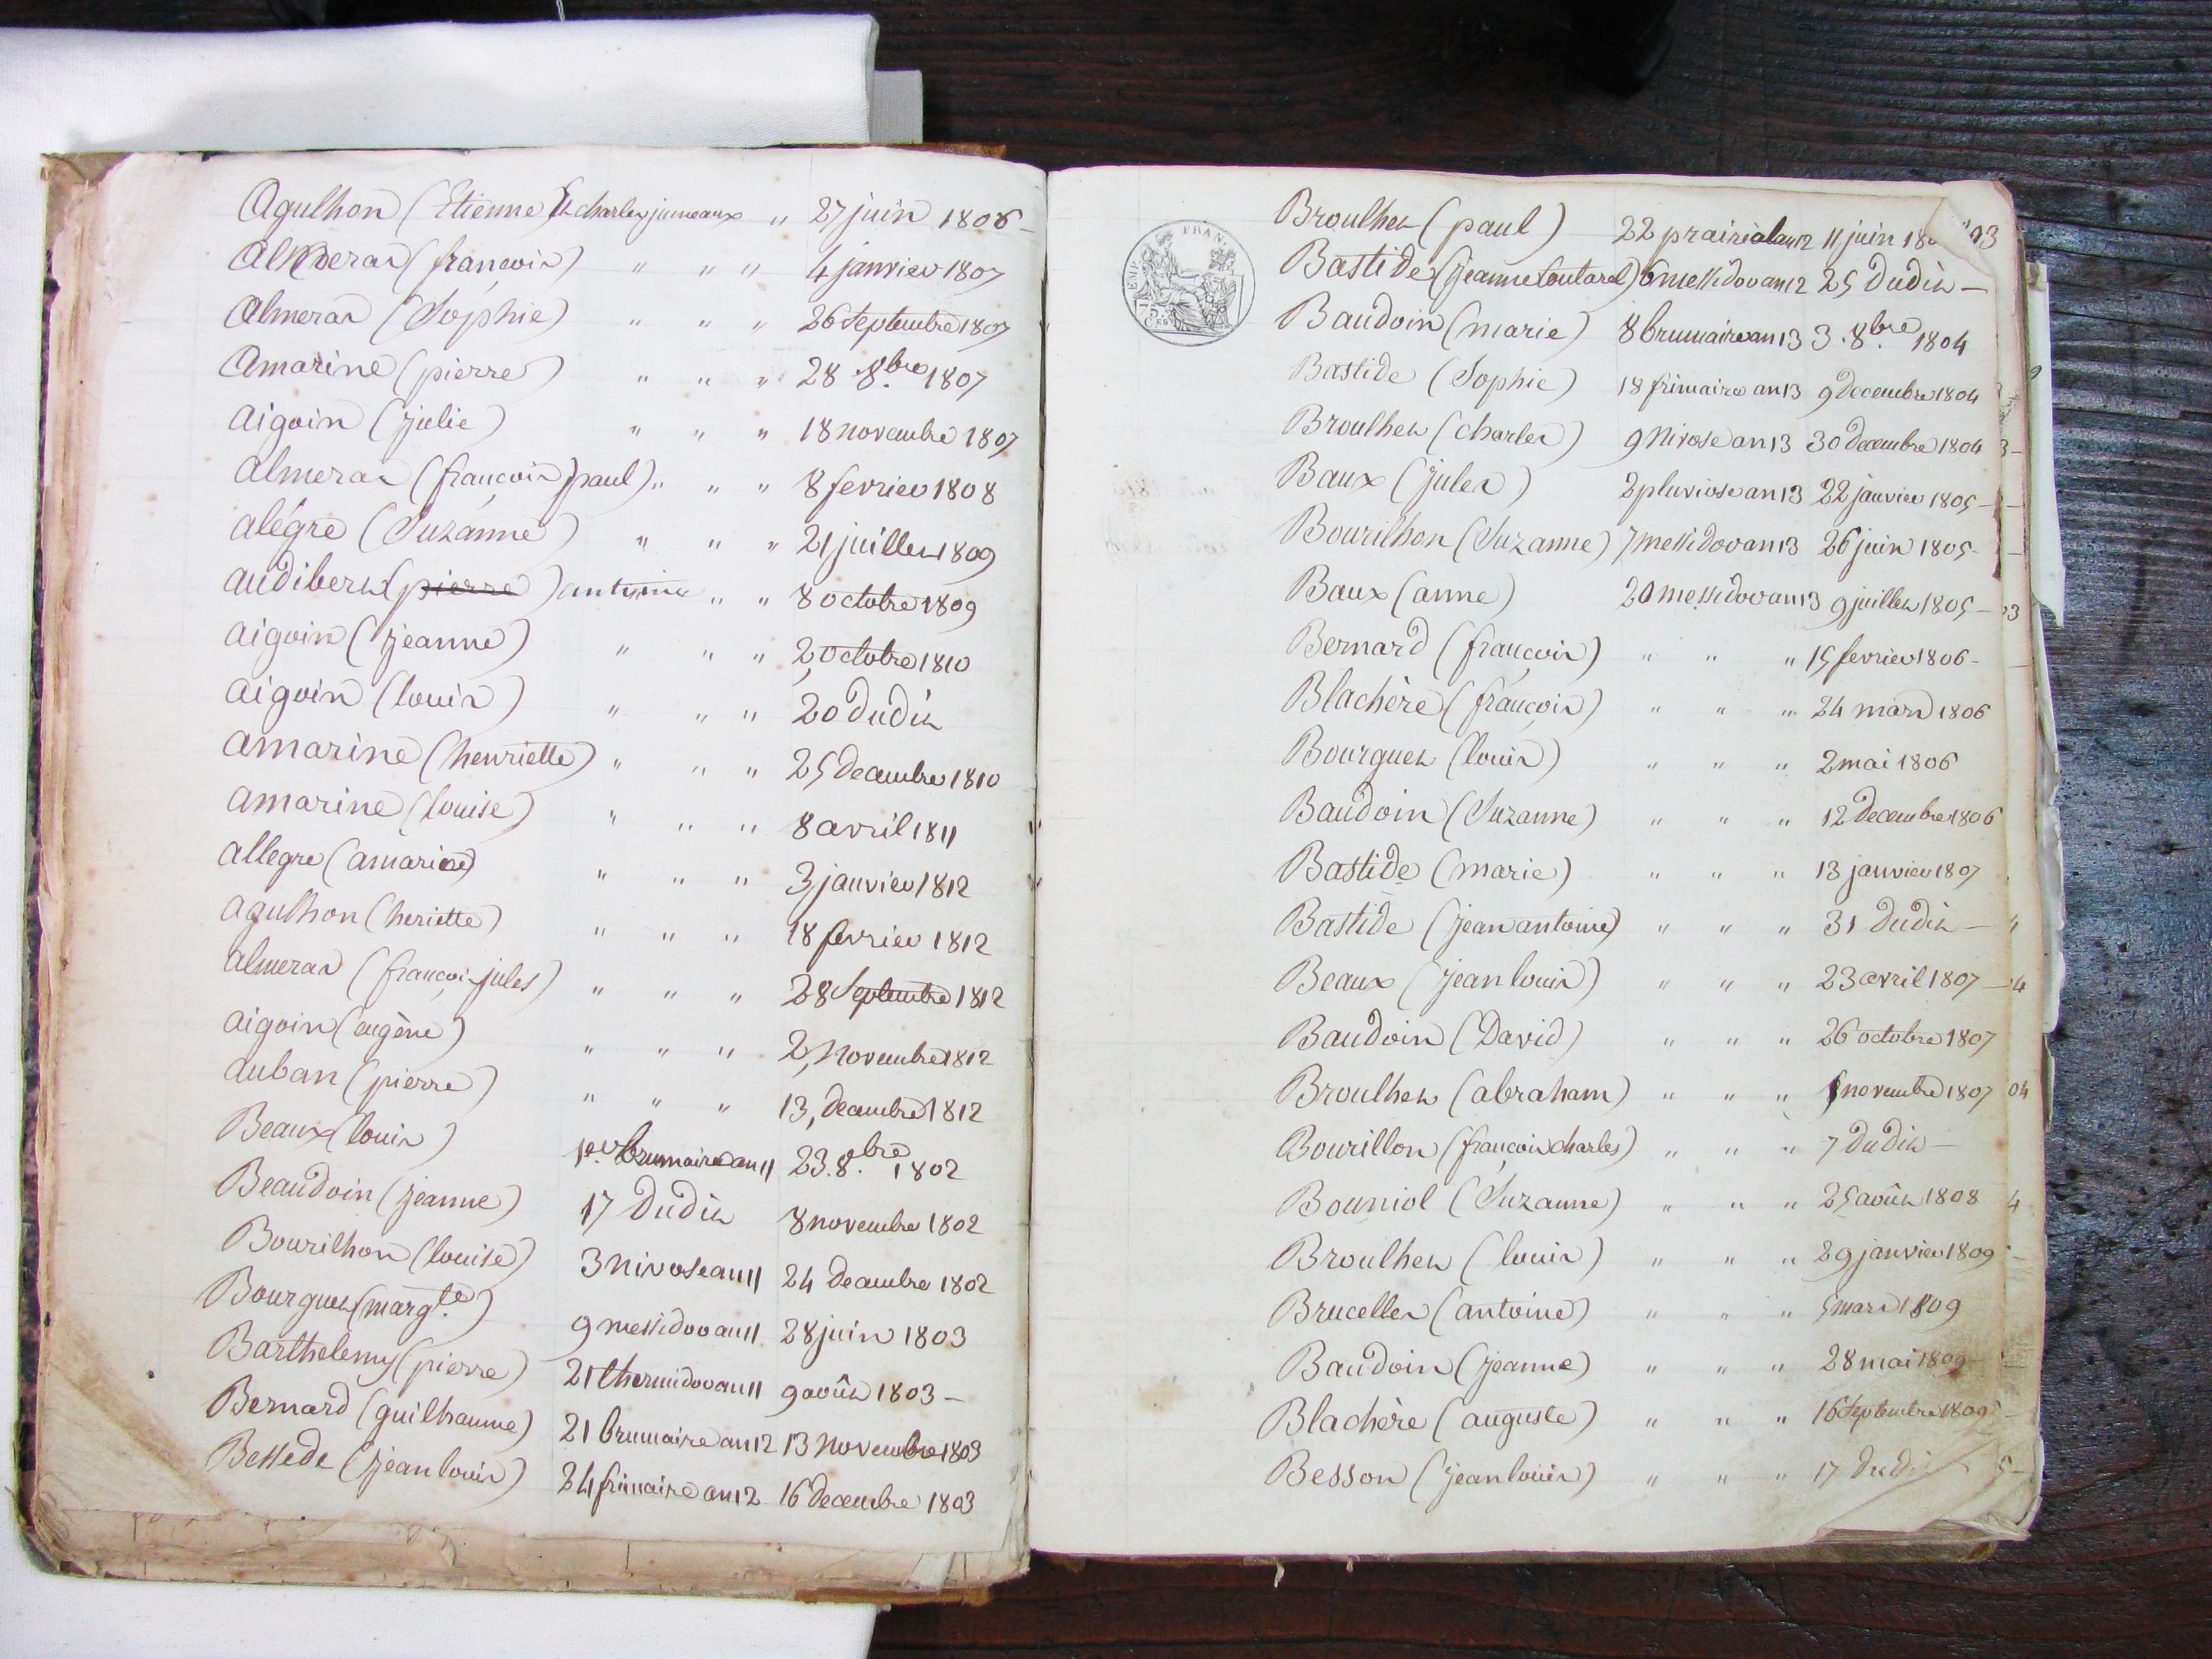 Agulhon (Etienne) Et charles jumeaux " 27 juin 1806 –
Almeras (françois) " " " 4 janvier 1807
Almeras (Sophie) " " " 26 Septembre 1807
Amarine (pierre) " " " 28 8.bre 1807
aigoin (julie) " " " 18 novembre 1807
almeras (françois paul) " " " 8 fevrier 1808
alégre (Suzanne) " " " 21 juillet 1809
audibert (pierre) antoine " " 8 octobre 1809
aigoin (jeanne) " " " 2, octobre 1810
aigoin (louis) " " " 20 dudit
amarine (henriette) " " " 25 decembre 1810
amarine (louise) " " " 8 avril 1811
allegre (amarine) " " " 3 janvier 1812
agulhon (heriette) " " " 18 fevrier 1812
almeras (françois jules) " " " 28 Septembre 1812
aigoin (eugène) " " " 2, novembre 1812
auban (pierre) " " " 13, decembre 1812
Beaux (louis) 1er brumaire an 11 23. 8.bre 1802
Beaudoin (jeanne) 17 dudit 8 novembre 1802
Bourilhon (louise) 3 nivose an 11 24 decembre 1802
Bourguet (marg.te) 9 messidor an 11 28 juin 1803
Barthelemy (pierre) 21 thermidor an 11 9 août 1803 –
Bernard (guilhaume) 21 brumaire an 12 13 novembre 1803
Bessede (jean louis) 24 frimaire an 12 16 decembre 1803
EMP FRAN
75
CES
Broulhet (paul) 22 prairial an 12 11 juin 18
Bastide (jeanne Coutarel) 6 messidor an 12 25 dudit –
Baudoin (marie) 8 brumaire an 13 3. 8.bre 1804
Bastide (Sophie) 18 frimaire an 13 9 decembre 1804
Broulhet (charles) 9 nivose an 13 30 decembre 1804
Baux (jules) 2 pluviose an 13 22 janvier 1805 –
Bourilhon (Suzanne) 7 messidor an 13 26 juin 1805 –
Baux (anne) 20 messidor an 13 9 juillet 1805 –
Bernard (françois) " " " 15 fevrier 1806 –
Blachère (françois) " " " 24 mars 1806
Bourguet (louis) " " " 2 mai 1806
Baudoin (Suzanne) " " " 12 decembre 1806
Bastide (marie) " " " 13 janvier 1807
Bastide (jean antoine) " " " 31 dudit –
Beaux (jean louis) " " " 23 avril 1807 –
Baudoin (David) " " " 26 octobre 1807
Broulhet (abraham) " " " novembre 1807
Bourillon (françois charles) " " " 7 dudit –
Bouniol (Suzanne) " " " 25 août 1808
Broulhet (louis) " " " 29 janvier 1809
Brucelles (antoine) " " " 5 mars 1809
Baudoin (jeanne) " " " 28 mai 1809 –
Blachère (auguste) " " " 16 Septembre 1809
Besson (jean louis) " " " 17 dudit